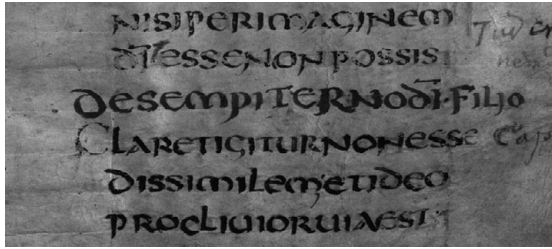 NISIPERIMAGINEM
DĪESSENONPOSSIS
DESEMPITERNODĪ·FILIO
CLARETIGITURNONESSE
DISSIMILEMETIDEO
PROCLIUIORUIAEST